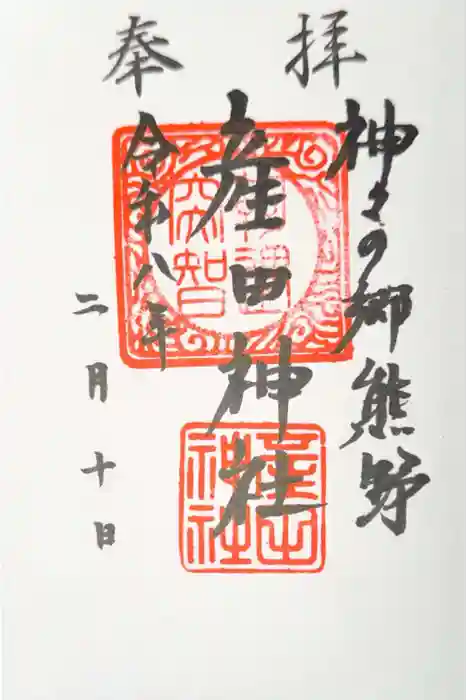 奉拝
神々の郷熊野
産田神社
令和八年
二月十日
産田神社